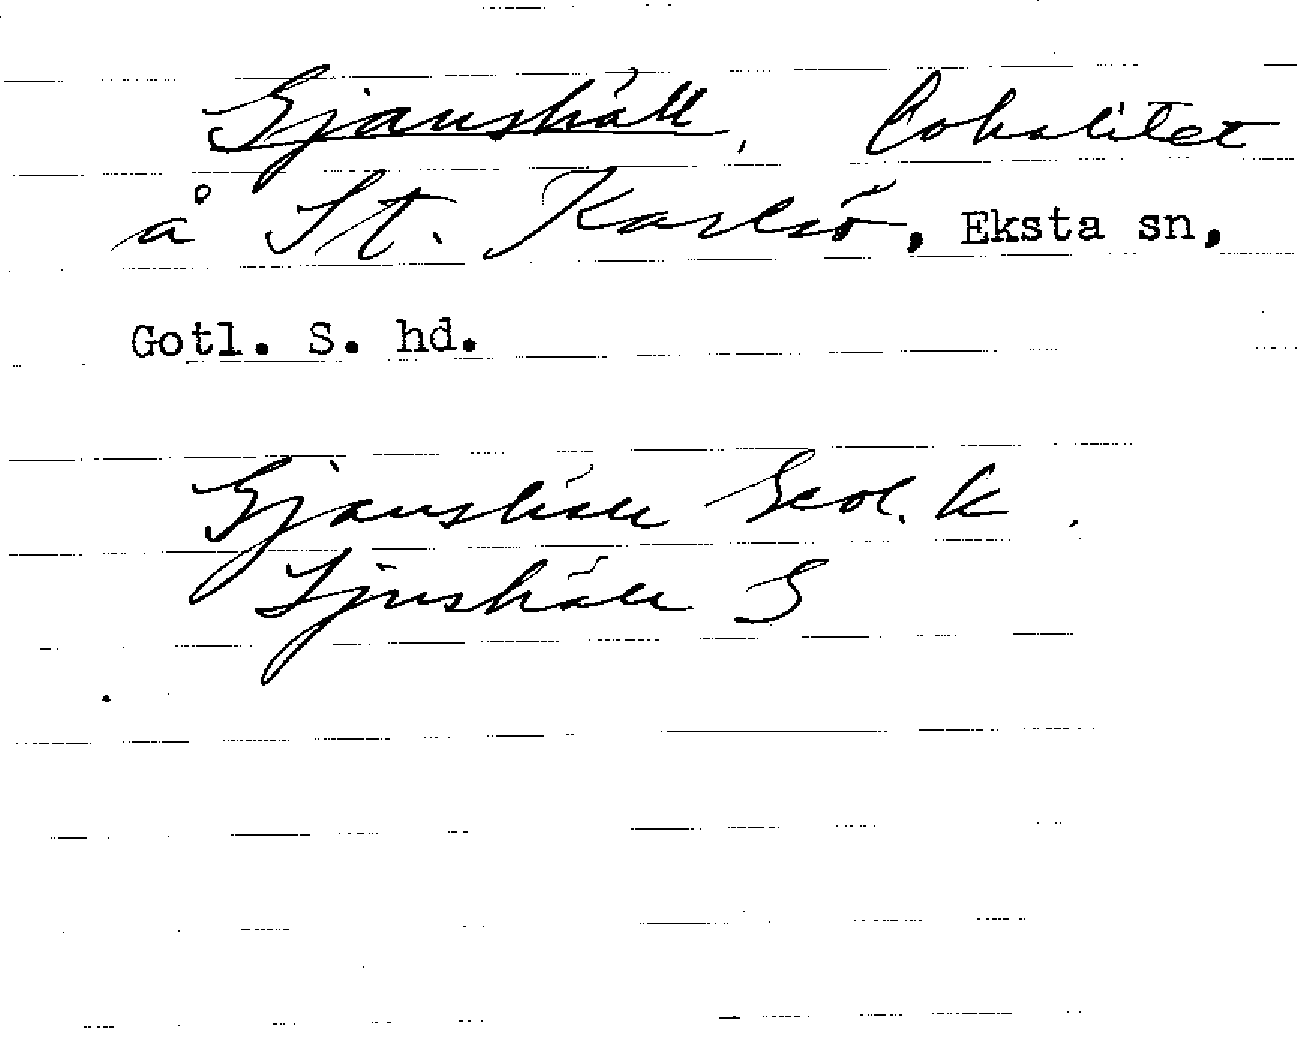 Gjaushäll, lokalitet
å St. Karlsö, Eksta sn,
Gotl. S. hd.
Gjaushäll Geol. k.
Ljushäll S